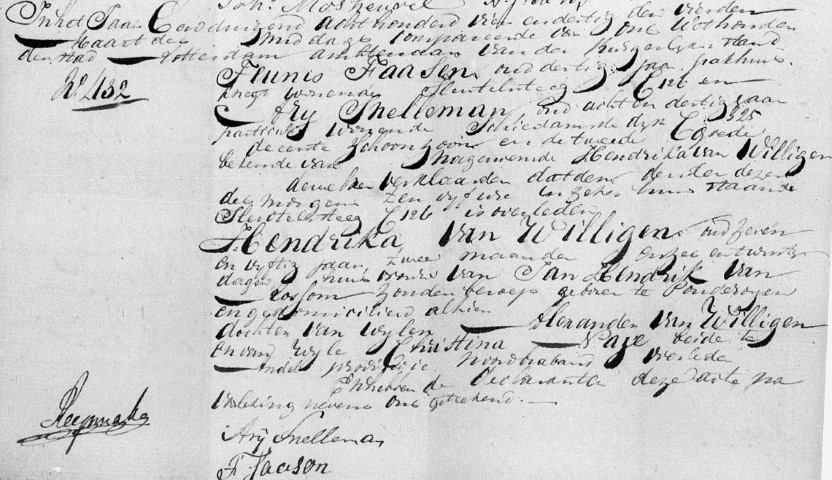 In het Jaar Een duizend acht honderd vier en dertig den vierden
Maart des Middags compareerde voor ons Wethouder
der stad Rotterdam ambtenaar van den burgerlyken stand
Teunis Faasen oud dertig jaar pakhuis
No 432
knegt wonende Sleutelsteeg C 126 en
Ary Snelleman oud acht en dertig jaar
particulier wonende Schiedamsche dyk C 325
de eerste schoonzoon en de tweede goede
bekende van nagenoemde Hendrika van Willigen
dewelke verklaarden dat den dezer
des morgens ten vyf ure in zeker huis staande
Sleutelsteeg C 126 is overleden
Hendrika van Willigen oud zeven
en vyftig jaar twee maanden en twintig
dagen huisvrouw van Jan Hendrik van
zonder beroep geboren te Poederoyen
en gedomicilieerd alhier
dochter van wylen Alexander van Willigen
en van wyle Christina beide te
Andel provincie Noordbraband overlede
En hebben de declaranten deze acte na
voorlezing nevens ons geteekend.
Ary Snelleman
F Faasen